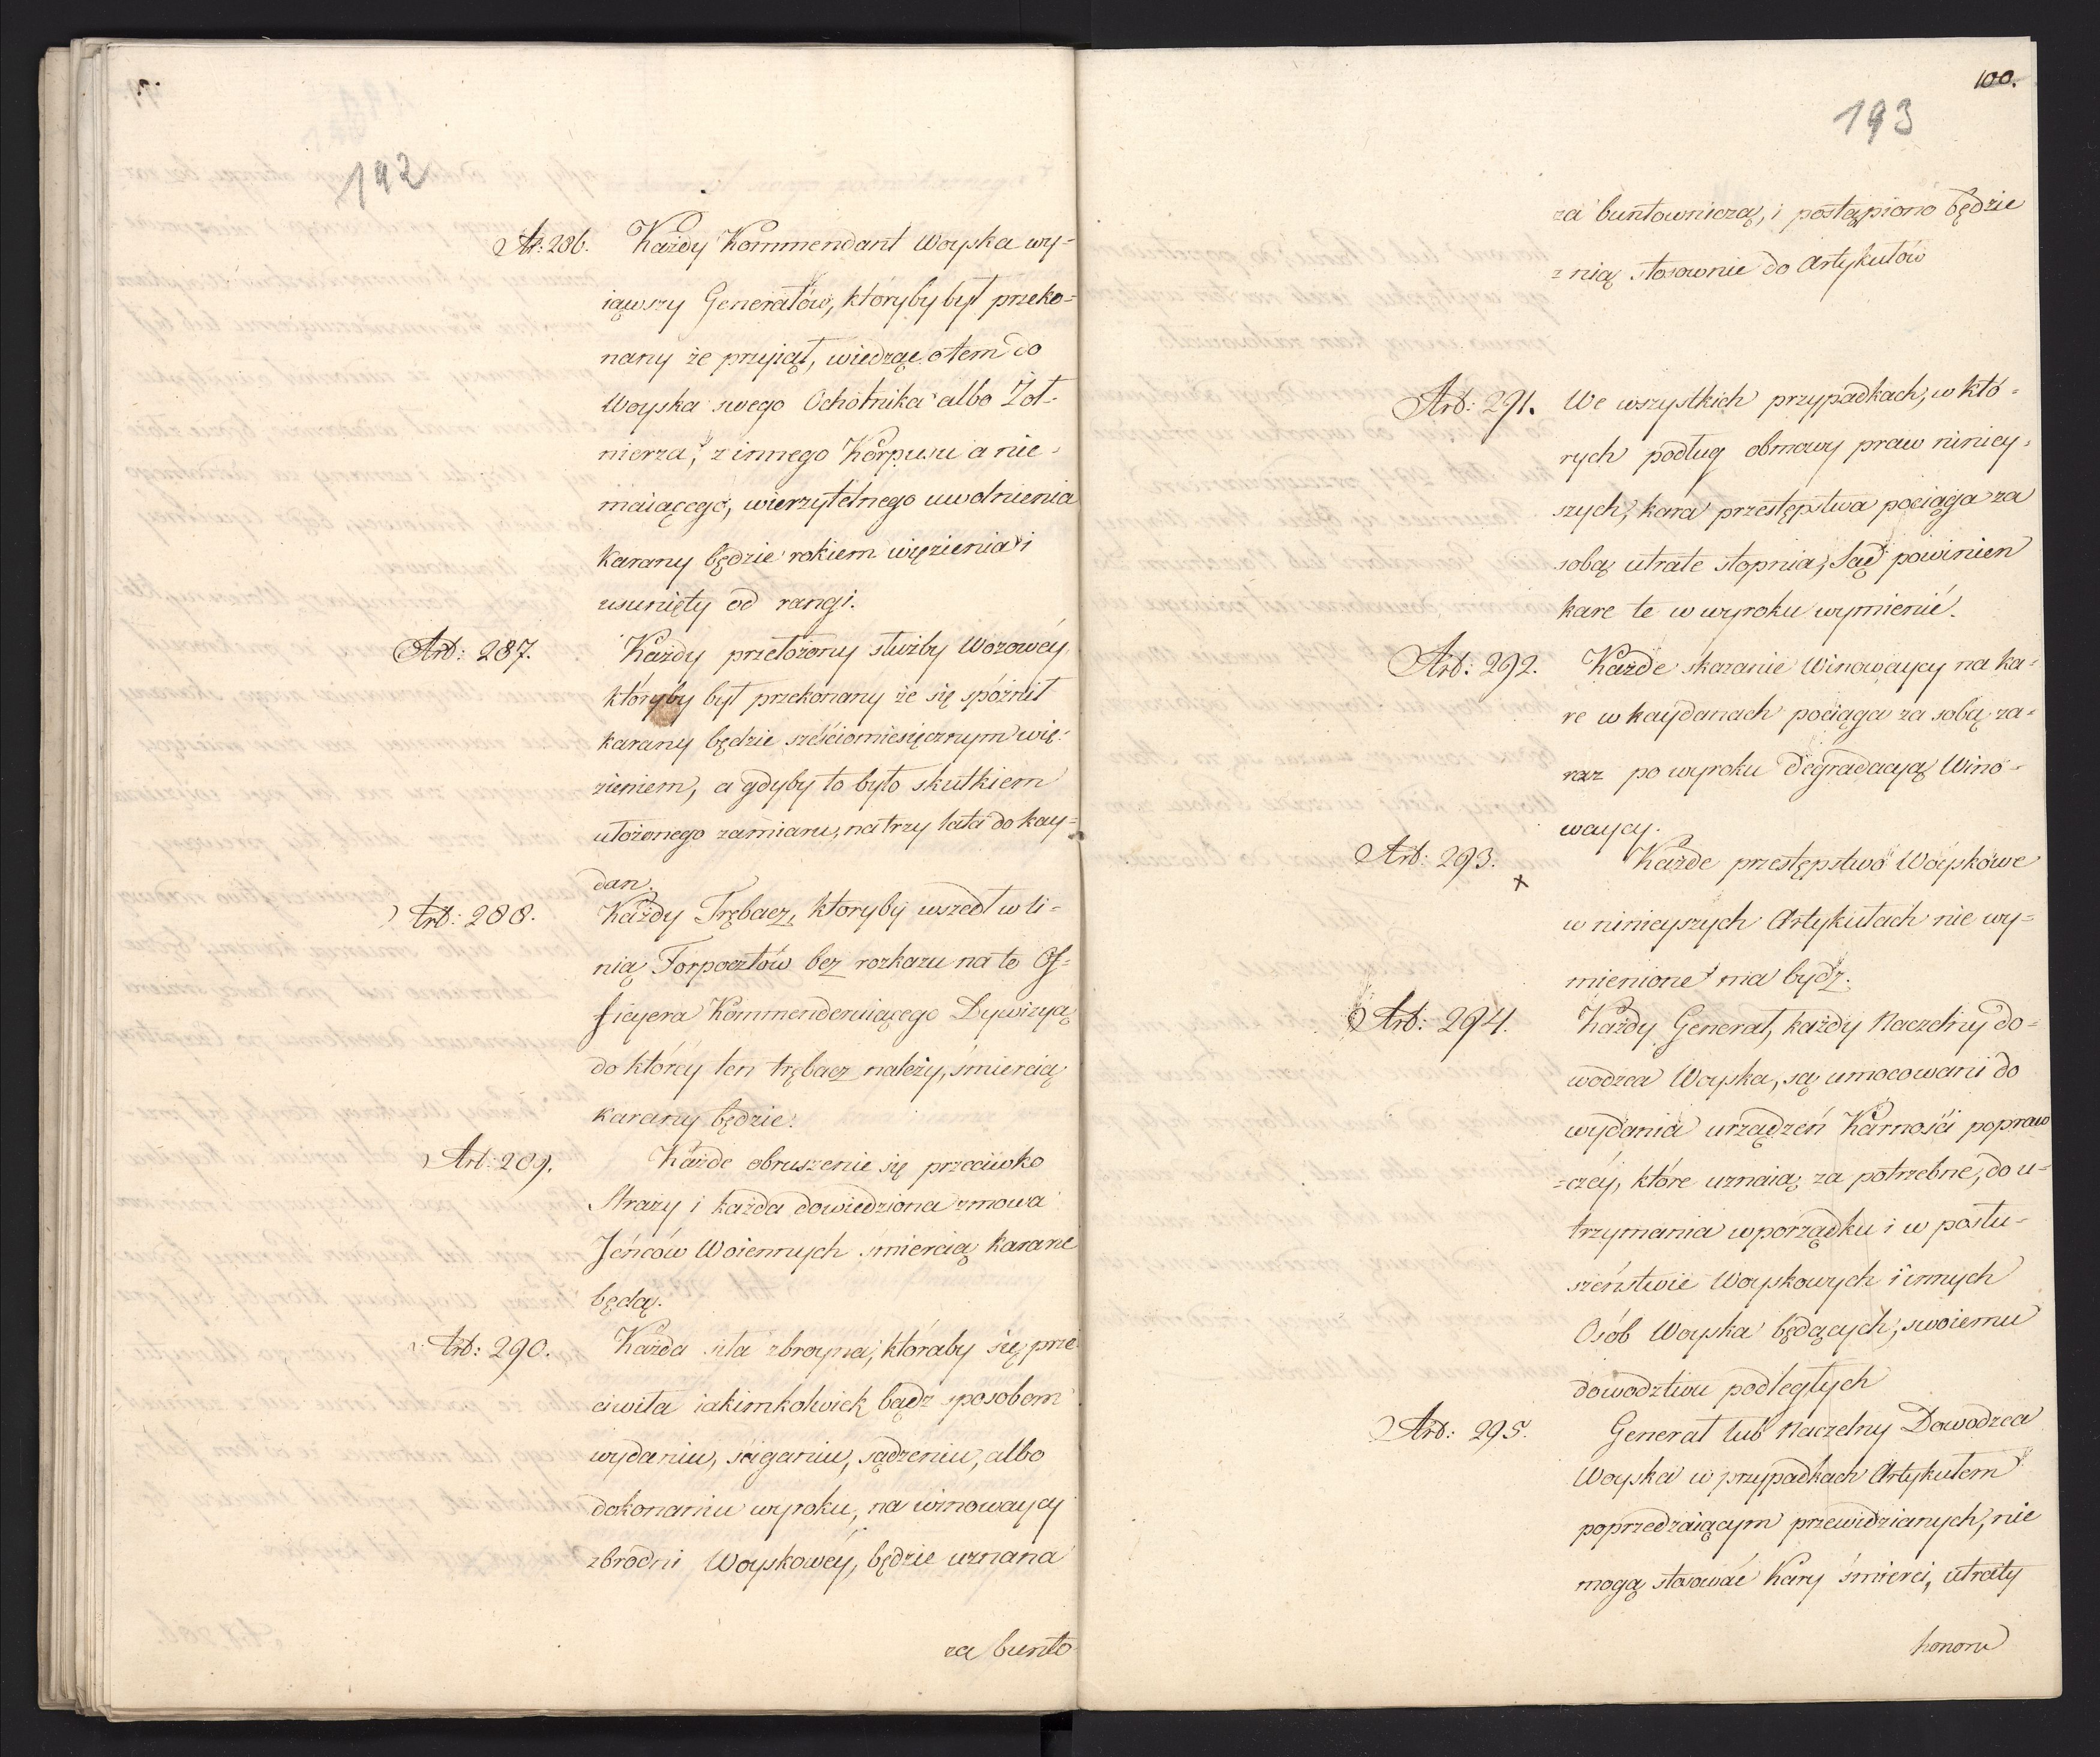 192
Art: 286. Każdy Kommendant Woyska wy=
iąwszy Generałów, któryby był przeko=
nany że przyiął, wiedząc otem do
Woyska swego Ochotnika albo Żoł-
nierza, z innego Korpusu a nie-
maiącego, wierzytelnego uwolnienia
karany będzie rokiem więzienia i
usunięty od rangi.
Art: 287. Każdy przełożony służby Wozowéy
któryby był przekonany że się spóźnił
karany będzie sześciomiesięcznym wię-
zieniem, a gdyby to było skutkiem
ułożonego zamiaru, na trzy lata do kay=
dan.
Art: 288. Każdy Trębacz, któryby wszedł w li-
nią Forpocztów bez rozkazu na to Of-
ficyera Kommenderuiącego Dywizyą
do któréy ten trębacz należy, śmiercią
karany będzie.
Art: 289. Każde obruszenie się przeciwko
Straży i każda dowiedziona zmowa
Jeńców Woiennych śmiercią karane
będą.
Art: 290. Każda siła zbroyna, któraby się prze
ciwiła iakimkolwiek bądź sposobem
wydaniu, ściganiu, sądzeniu, albo
dokonaniu wyroku, na winowaycy
zbrodni Woyskowéy, będzie uznana
za bunto
100.
193
za buntowniczą, i postąpiono będzie
z nią stosownie do Artykułów
Art: 291. We wszystkich przypadkach, w któ-
rych podług obmowy praw niniey-
szych, kara przestępstwa pociąga za
sobą utrate stopnia, Sąd powinien
kare te w wyroku wymienić.
Art: 292. Każde skazanie Winowaycy na ka-
re w kaydanach pociąga za sobą za-
raz po wyroku degradacyą Wino-
waycy.
Art: 293. Każde przestępstwo Woyskowe
x
w ninieyszych Artykułach nie wy=
mienione ma bydź.
Art: 294. Każdy Generał, każdy Naczelny do-
wodzca Woyska, są umocowani do
wydania urządzeń Karności popraw
=czéy, które uznaią za potrzebne, do u=
trzymania w porządku i w posłu-
szeństwie Woyskowych i innych
Osób Woyska będących, swoiemu
dowodztwu podległych
Art: 295. Generał lub Naczelny Dowodzca
Woyska w przypadkach Artykułem
poprzedzaiącym przewidzianych, nie
mogą stosować Kary śmierci, utraty
honoru